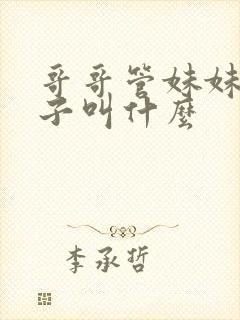 哥哥管妹妹
子叫什麼
李承哲